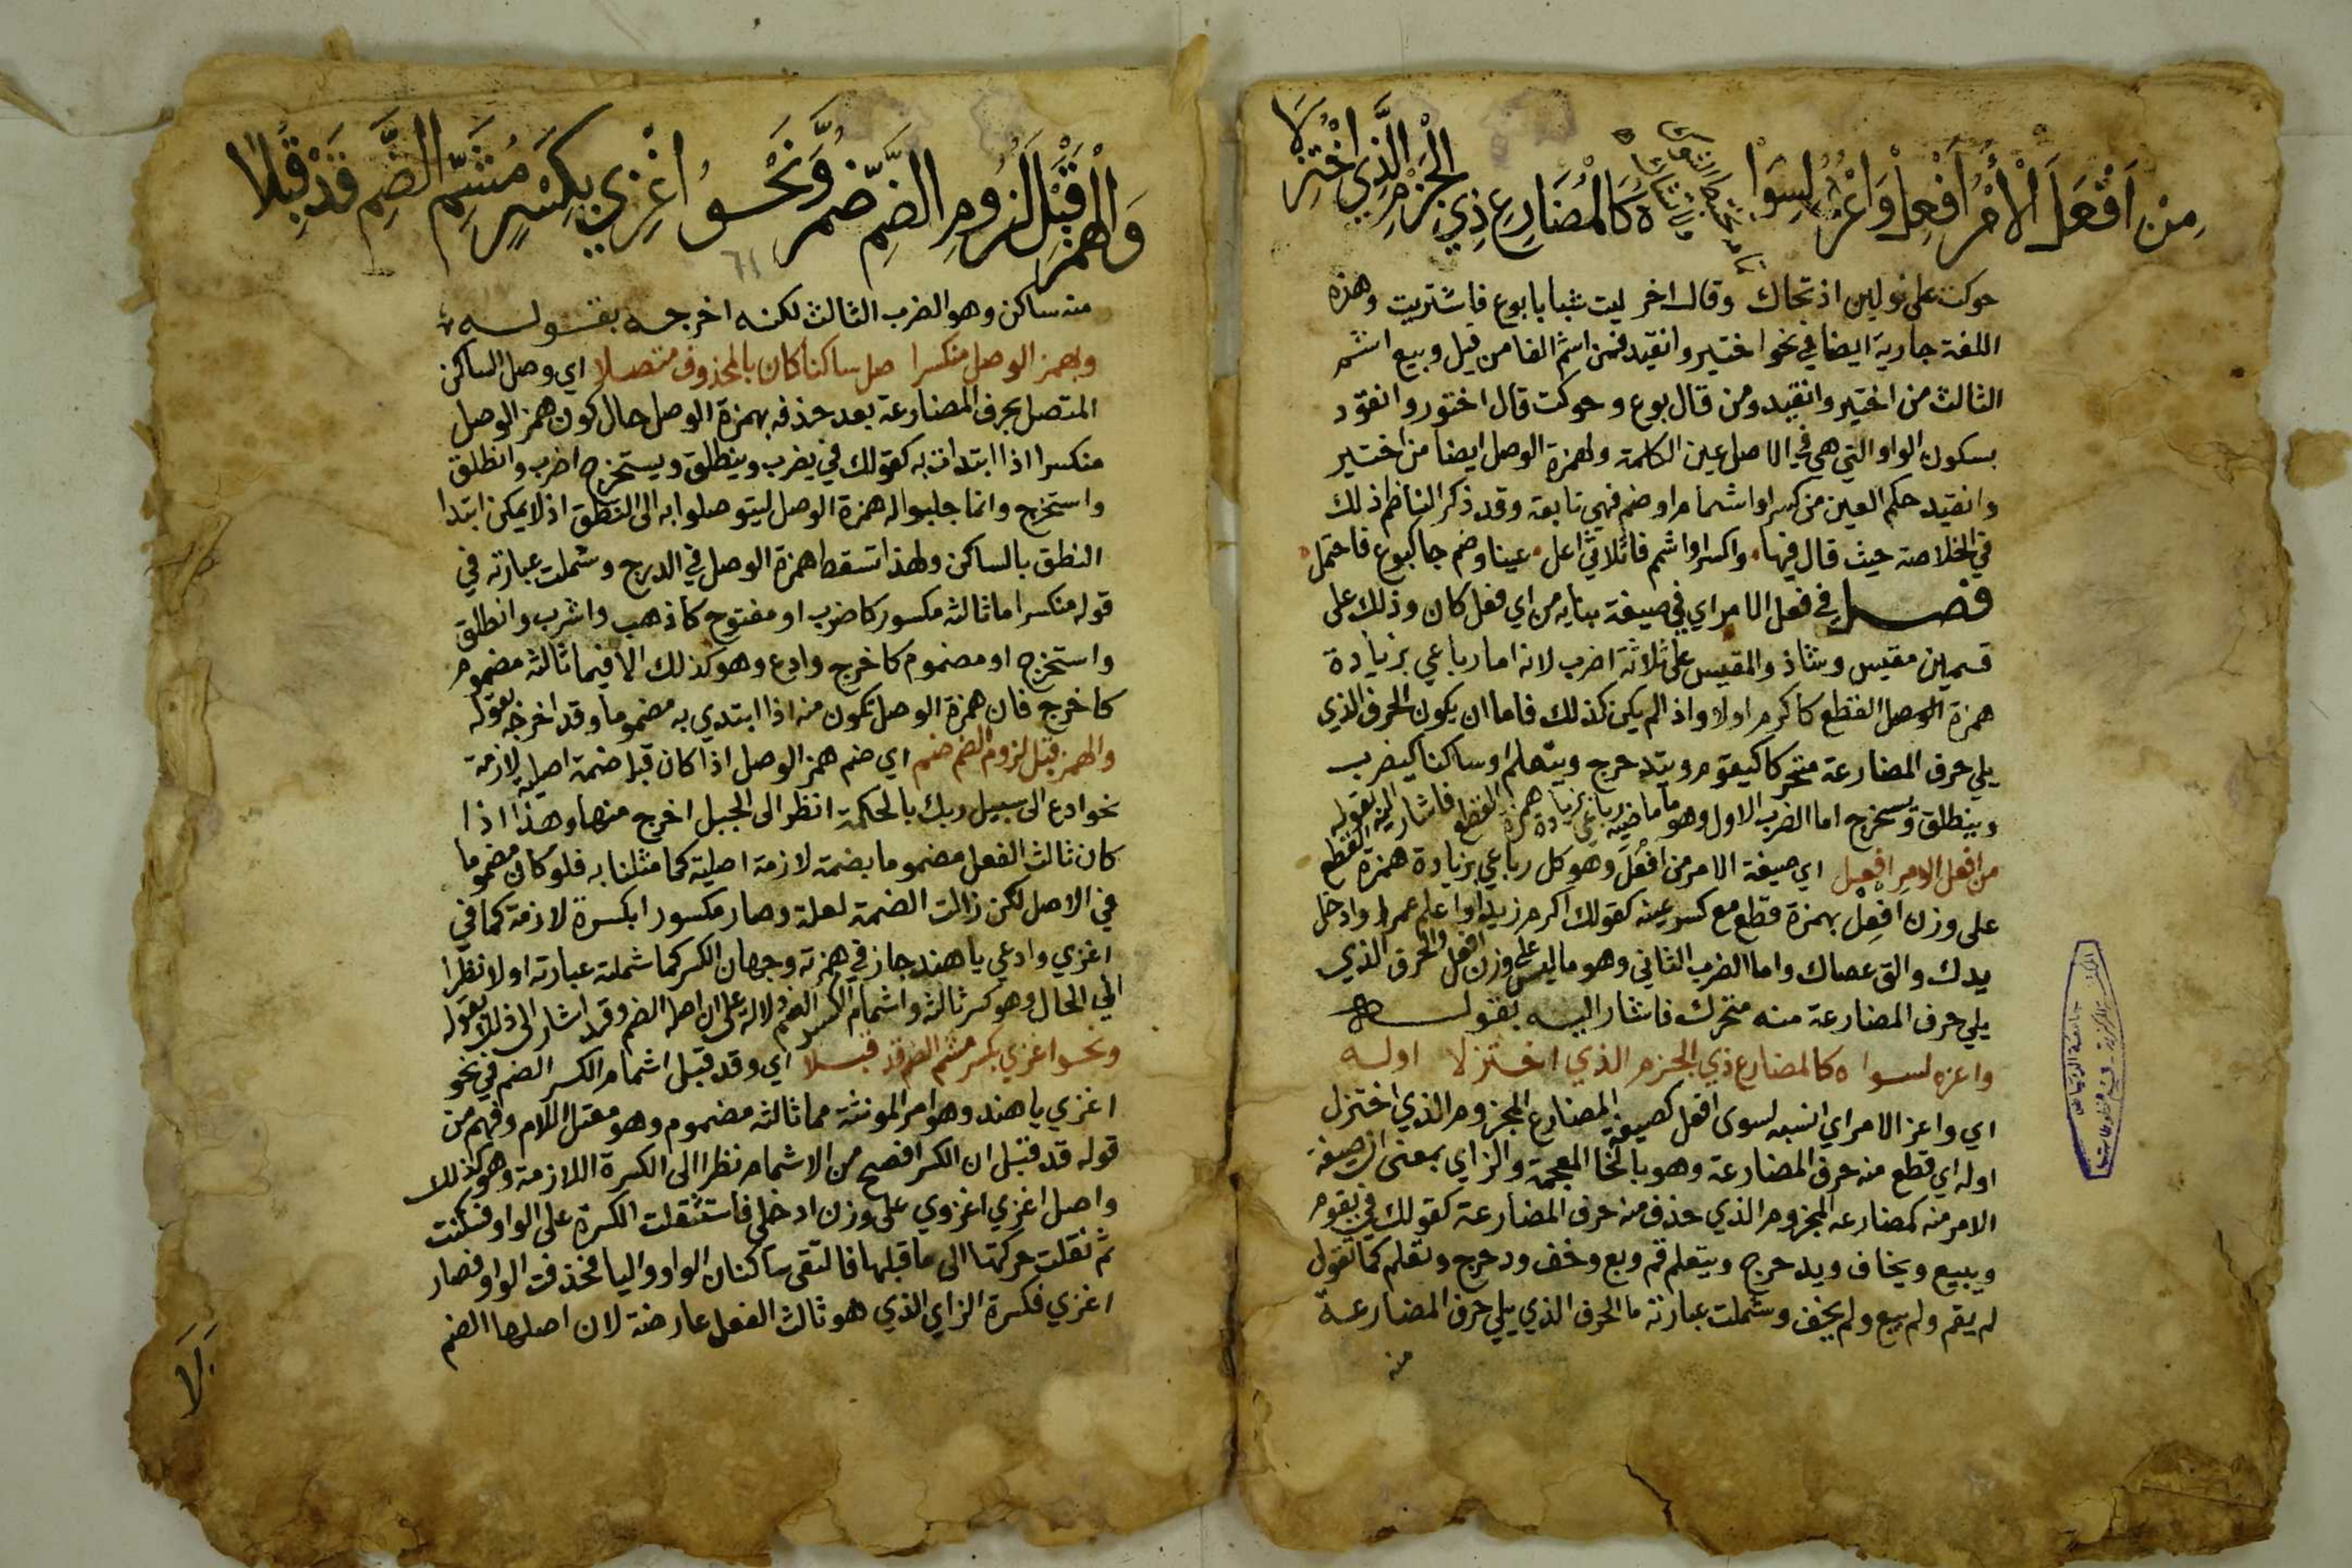 مِنْ اَفْعَلَ الْأَمْرُ اَفْعِلْ وَاعْزُهُ لِسِوَا
ه كَالْمُضَارِعِ ذِي الْجَزْمِ الَّذِي اخْتُزِلَا
حوكت على نولين اذ تحاك وقال اخر ليت شبابا بوع فاشتريت وهذه
اللغة جارية ايضا في نحو اختير وانقيد فمن اشم الفا من قيل وبيع اشم
الثالث من اختير وانقيد ومن قال بوع وحوكت قال اختور وانقود
بسكون الواو التي هي في الاصل عين الكلمة ولهمزة الوصل ايضا من اختير
وانقيد حكم العين من كسر او اشمام او ضم فهي تابعة وقد ذكر الناظم ذلك
في الخلاصة حيث قال فيها واكسر او اشمم فا ثلاثي اعل عينا وضم جا كبوع فاحتمل
فصل في فعل الامر اي في صيغة بنايه من اي فعل كان وذلك على
قسمين مقيس وشاذ والمقيس على ثلاثة اضرب لانه اما رباعي بزيادة
همزة الوصل القطع كاكرم اولا واذا لم يكن كذلك فاما ان يكون الحرف الذي
يلي حرف المضارعة متحركا كيقوم ويتدحرج ويتعلم او ساكنا كيضرب
وينطلق ويستخرج اما الضرب الاول وهو ما ماضيه رباعي بزيادة همزة القطع فاشار اليه بقوله
من افعل الامر افعل اي صيغة الامر من افعل وهو كل رباعي بزيادة همزة القطع
على وزن افعل بهمزة قطع مع كسر عينه كقولك اكرم زيدا واعلم عمرا وادخل
يدك والق عصاك واما الضرب الثاني وهو ما ليس على وزن افعل والحرف الذي
يلي حرف المضارعة منه متحرك فاشار اليه بقوله
واعزه لسواه كالمضارع ذي الجزم الذي اختزلا اوله
اي واعز الامر اي انسبه لسوى افعل كصيغة المضارع المجزوم الذي اختزل
اوله اي قطع منه حرف المضارعة وهو بالخا المعجمة والزاي بمعنى ان صيغة
الامر منه كمضارعه المجزوم الذي حذف منه حرف المضارعة كقولك في يقوم
ويبيع ويخاف ويدحرج ويتعلم قم وبع وخف ودحرج وتعلم كما تقول
لم يقم ولم يبع ولم يخف وشملت عبارته ما الحرف الذي يلي حرف المضارعة
منه
وَالْهَمْزَ قَبْلَ لُزُومِ الضَّمِّ ضُمَّ وَنَحْوُ اغْزِي بِكَسْرٍ مُشَمِّ الضَّمِّ قَدْ قُبِلَا
61
منه ساكن وهو الضرب الثالث لكنه اخرجه بقوله
وبهمز الوصل منكسرا صل ساكنا كان بالمحذوف متصلا اي وصل الساكن
المتصل بحرف المضارعة بعد حذفه بهمزة الوصل حال كون همز الوصل
منكسرا اذا ابتدات به كقولك في يضرب وينطلق ويستخرج اضرب وانطلق
واستخرج وانما جلبوا له همزة الوصل ليتوصلوا به الى النطق اذ لا يمكن ابتدا
النطق بالساكن ولهذا تسقط همزة الوصل في الدرج وشملت عبارته في
قوله منكسرا ما ثالثه مكسور كاضرب او مفتوح كاذهب واشرب وانطلق
واستخرج او مضموم كاخرج وادع وهو كذلك الا فيما ثالثه مضموم
كاخرج فان همزة الوصل تكون منه اذا ابتدي به مضموما وقد اخرجه بقوله
والهمز قبل لزوم الضم ضم اي ضم همز الوصل اذا كان قبل ضمة اصلية لازمة
نحو ادع الى سبيل ربك بالحكمة انظر الى الجبل اخرج منها وهذا اذا
كان ثالث الفعل مضموما بضمة لازمة اصلية كما مثلنا به فلو كان مضموما
في الاصل لكن زالت الضمة لعلة وصار مكسورا بكسرة لازمة كما في
اغزي وادعي يا هند جاز في همزته وجهان الكسر كما شملته عبارته اولا نظرا
الى الحال وهو كسر ثالثه واشمام الكسر الضم دلالة على ان اصله الضم وقد اشار الى ذلك بقوله
ونحو اغزي بكسر مشم الضم قد قبلا اي وقد قبل اشمام الكسر الضم في نحو
اغزي يا هند وهو امر المونثة مما ثالثه مضموم وهو معتل اللام وفهم من
قوله قد قبل ان الكسر افصح من الاشمام نظرا الى الكسرة اللازمة وهو كذلك
واصل اغزي اغزوي على وزن ادخلي فاستثقلت الكسرة على الواو فسكنت
ثم نقلت حركتها الى ما قبلها فالتقى ساكنان الواو واليا فحذفت الواو فصار
اغزي فكسرة الزاي الذي هو ثالث الفعل عارضة لان اصلها الضم